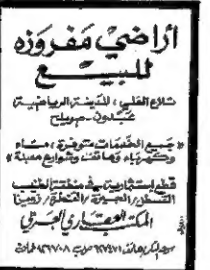 أراضي مفروزه
للبيع
تلاع العلي، المدينة الرياضية
عبدون - صويلح
جميع الخدمات متوفرة، ماء
وكهرباء وهاتف وشوارع معبدة
قطع استثمارية في منطقة الطنيب
القسطل / الجيزة / القنطرة / زوبيا
المكتب العقاري العربي